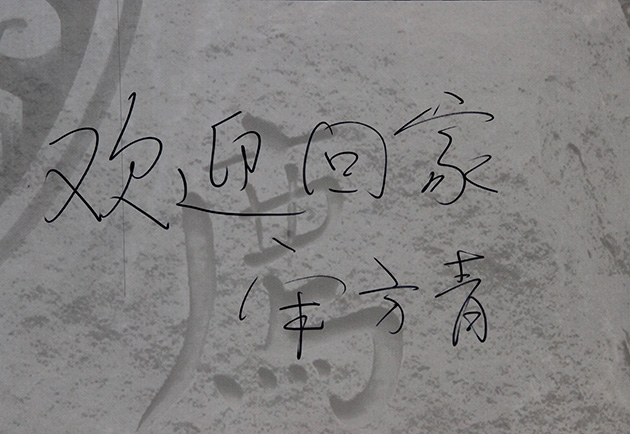 欢迎回家
宋方青